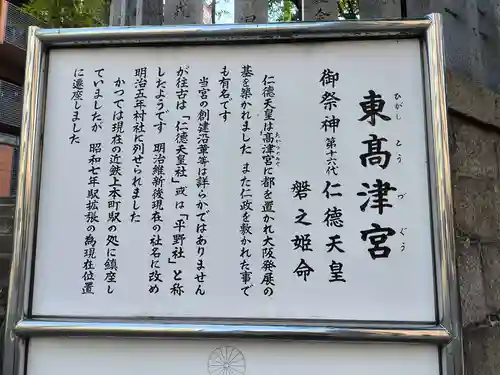 東高津宮
ひがしとうづぐう
御祭神 第十六代 仁徳天皇
磐之姫命
仁徳天皇は高津宮に都を置かれ大阪発展の
基を築かれました また仁政を敷かれた事で
も有名です
当宮の創建沿革等は詳らかではありません
が往古は「仁徳天皇社」或は「平野社」と称
したようです 明治維新後現在の社名に改め
明治五年村社に列せられました
かつては現在の近鉄上本町駅の処に鎮座し
ていましたが 昭和七年駅拡張の為現在位置
に遷座しました